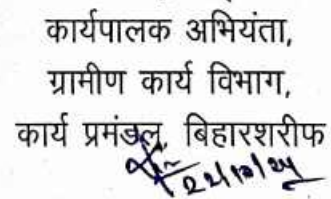 कार्यपालक अभियंता,
ग्रामीण कार्य विभाग,
कार्य प्रमंडल, बिहारशरीफ
22/10/24